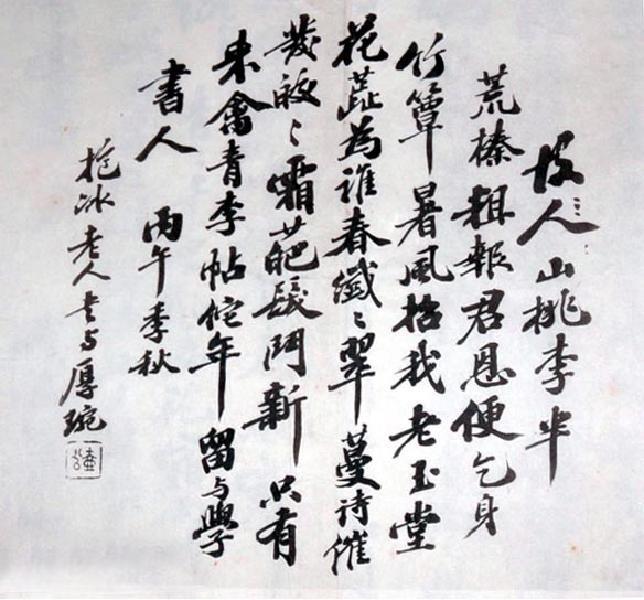 故人山桃李半
荒榛粗報君恩便乞身
竹簟暑風招我老玉堂
花蕊為誰春纖〻翠蔓詩催
發皎〻霜葩髮鬥新只有
來禽青李帖佗年留与學
書人 丙午季秋
抱冰老人書与厚琬